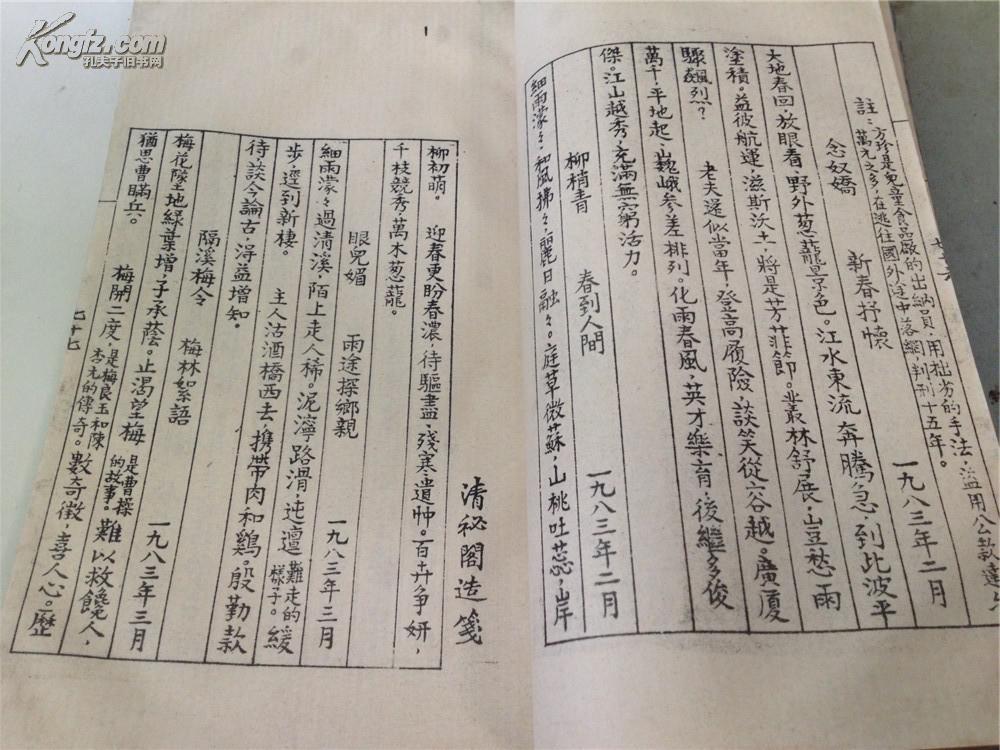 Kongfz.com
孔夫子旧书网
註：方珍是兒童食品廠的出納員，用拙劣的手法，盜用公款達
萬元之多，在逃往國外途中落網，判刑十五年。
念奴嬌　新春抒懷　一九八三年二月
大地春回，放眼看，野外葱蘢景色。江水東流奔騰急，到此波平
塗積。益彼航運，滋斯沃土，將是芳菲節。叢林舒展，豈愁雨
驟飆烈？　老夫遂似當年，登高履險，談笑從容越。廣厦
萬千，平地起，巍峨參差排列。化雨春風，英才樂育，後繼多俊
傑。江山越秀，充滿無窮活力。
柳梢青　春到人間　一九八三年二月
細雨濛々，和風拂々，麗日融々。庭草微蘇，山桃吐蕊，岸
柳初萌。　迎春更盼春濃，待驅盡，殘寒遺忡。百卉争妍，
千枝競秀，萬木葱蘢。
眼兒媚　雨途探鄉親　一九八三年三月
細雨濛々過清溪，陌上走人稀。泥濘路滑，迍邅難走的樣子。緩
步，逕到新棲。　主人沽酒橋西去，携帶肉和鷄。殷勤款
待，談今論古，得益增知。
隔溪梅令　梅林絮語　一九八三年三月
梅花墜地綠葉增，子承蔭。止渴望梅是曹操的故事。難以救饞人，
猶思曹瞞兵。　梅開二度，是梅良玉和陳杏元的傳奇。數奇徵，喜人心。歷
七十七
清祕閣造箋